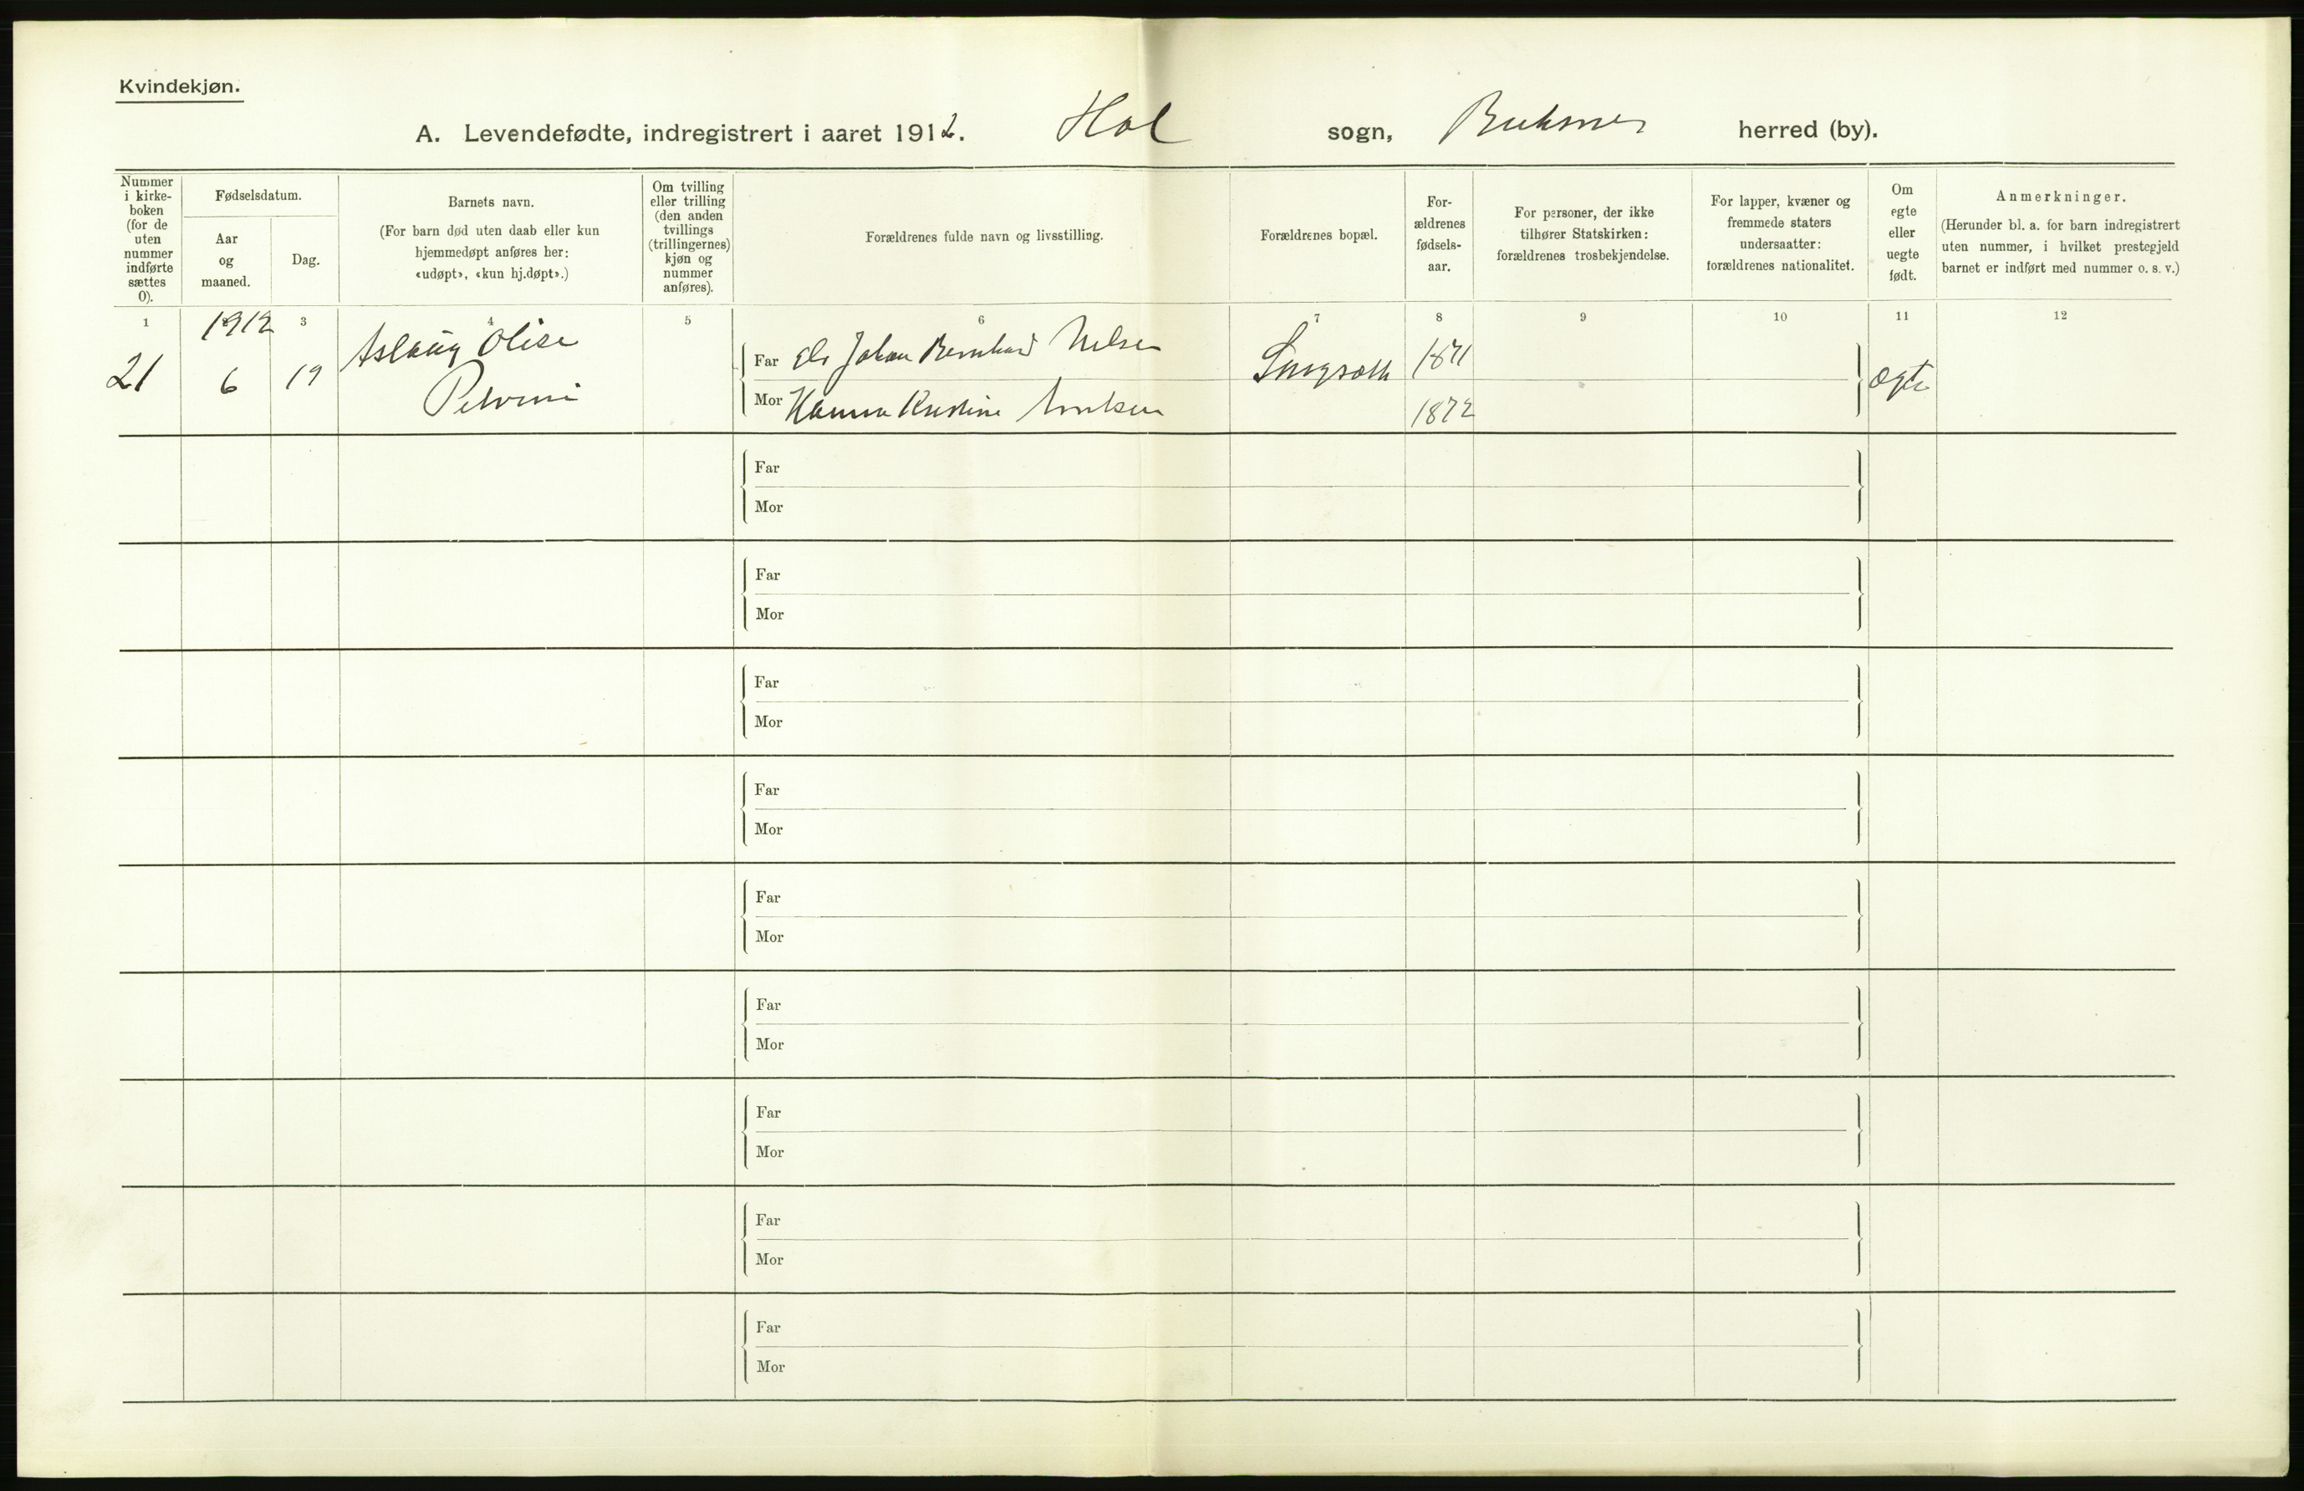 Kvindekjøn.
A. Levendefødte, indregistrert i aaret 1912. Hol sogn, Buksnes herred (by).
Nummer i kirke-boken (for de uten nummer indførte sættes 0).
Fødselsdatum.
Aar og maaned.
Dag.
Barnets navn.
(For barn død uten daab eller kun hjemmedøpt anføres her: «udøpt», «kun hj.døpt».)
Om tvilling eller trilling (den anden tvillings (trillingernes) kjøn og nummer anføres).
Forældrenes fulde navn og livsstilling.
Forældrenes bopæl.
For-ældrenes fødsels-aar.
For personer, der ikke tilhører Statskirken: forældrenes trosbekjendelse.
For lapper, kvæner og fremmede staters undersaatter: forældrenes nationalitet.
Om egte eller uegte født.
Anmerkninger.
(Herunder bl. a. for barn indregistrert uten nummer, i hvilket prestegjeld barnet er indført med nummer o. s. v.)
1 3 4 5 6 7 8 9 10 11 12
1912
21 6 19 Aslaug Olise
Far Johan Bernhard Nilsen 1871
Mor Hanna Kristine 1872
ægte
Far
Mor
Far
Mor
Far
Mor
Far
Mor
Far
Mor
Far
Mor
Far
Mor
Far
Mor
Far
Mor